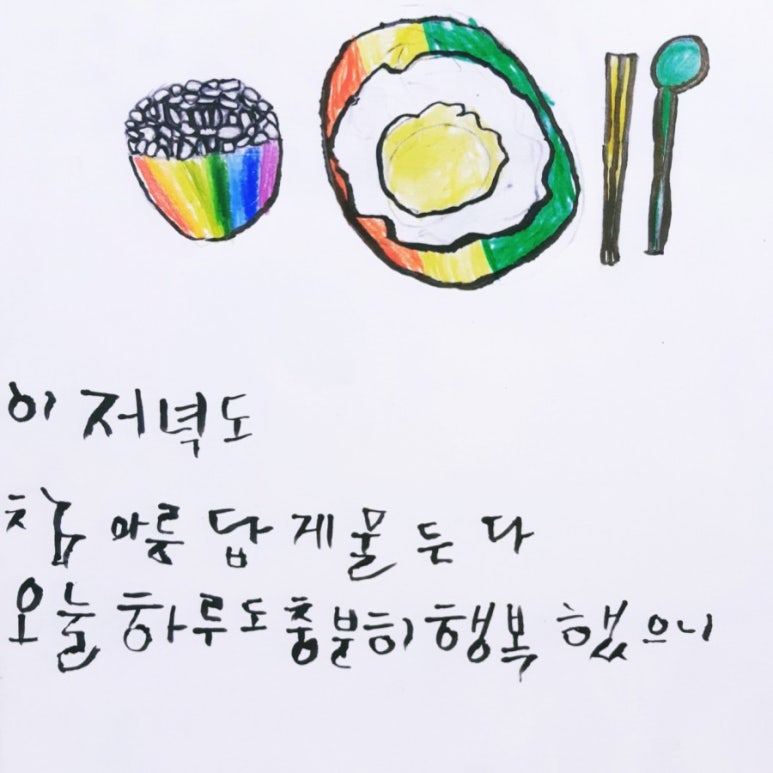 이 저녁도
참 아름답게 물든다
오늘 하루도 충분히 행복했으니